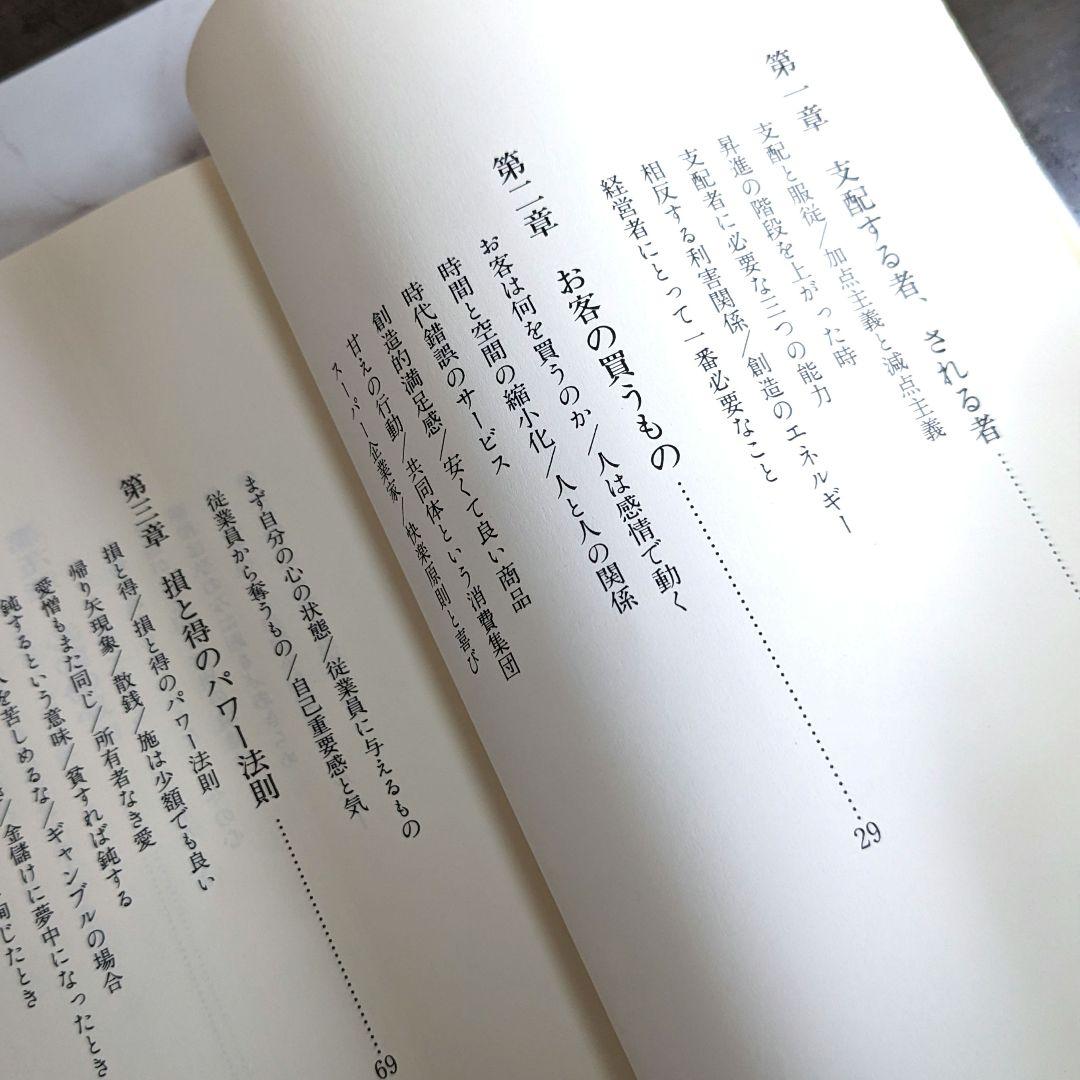 第一章 支配する者、される者…………
支配と服従/加点主義と減点主義
昇進の階段を上がった時
支配者に必要な三つの能力
相反する利害関係/創造のエネルギー
経営者にとって一番必要なこと
第二章 お客の買うもの…………29
お客は何を買うのか/人は感情で動く
時間と空間の縮小化/人と人の関係
時代錯誤のサービス
創造的満足感/安くて良い商品
甘えの行動/共同体という消費集団
スーパー企業家/快楽原則と喜び
まず自分の心の状態/従業員に与えるもの
従業員から奪うもの/自己重要感と気
第三章 損と得のパワー法則…………69
損と得/損と得のパワー法則
帰り矢現象/散銭/施は少額でも良い
愛憎もまた同じ/所有者なき愛
鈍するという意味/貧すれば鈍する
を苦しめるな/ギャンブルの場合
金儲けに夢中になったとき
同じたとき